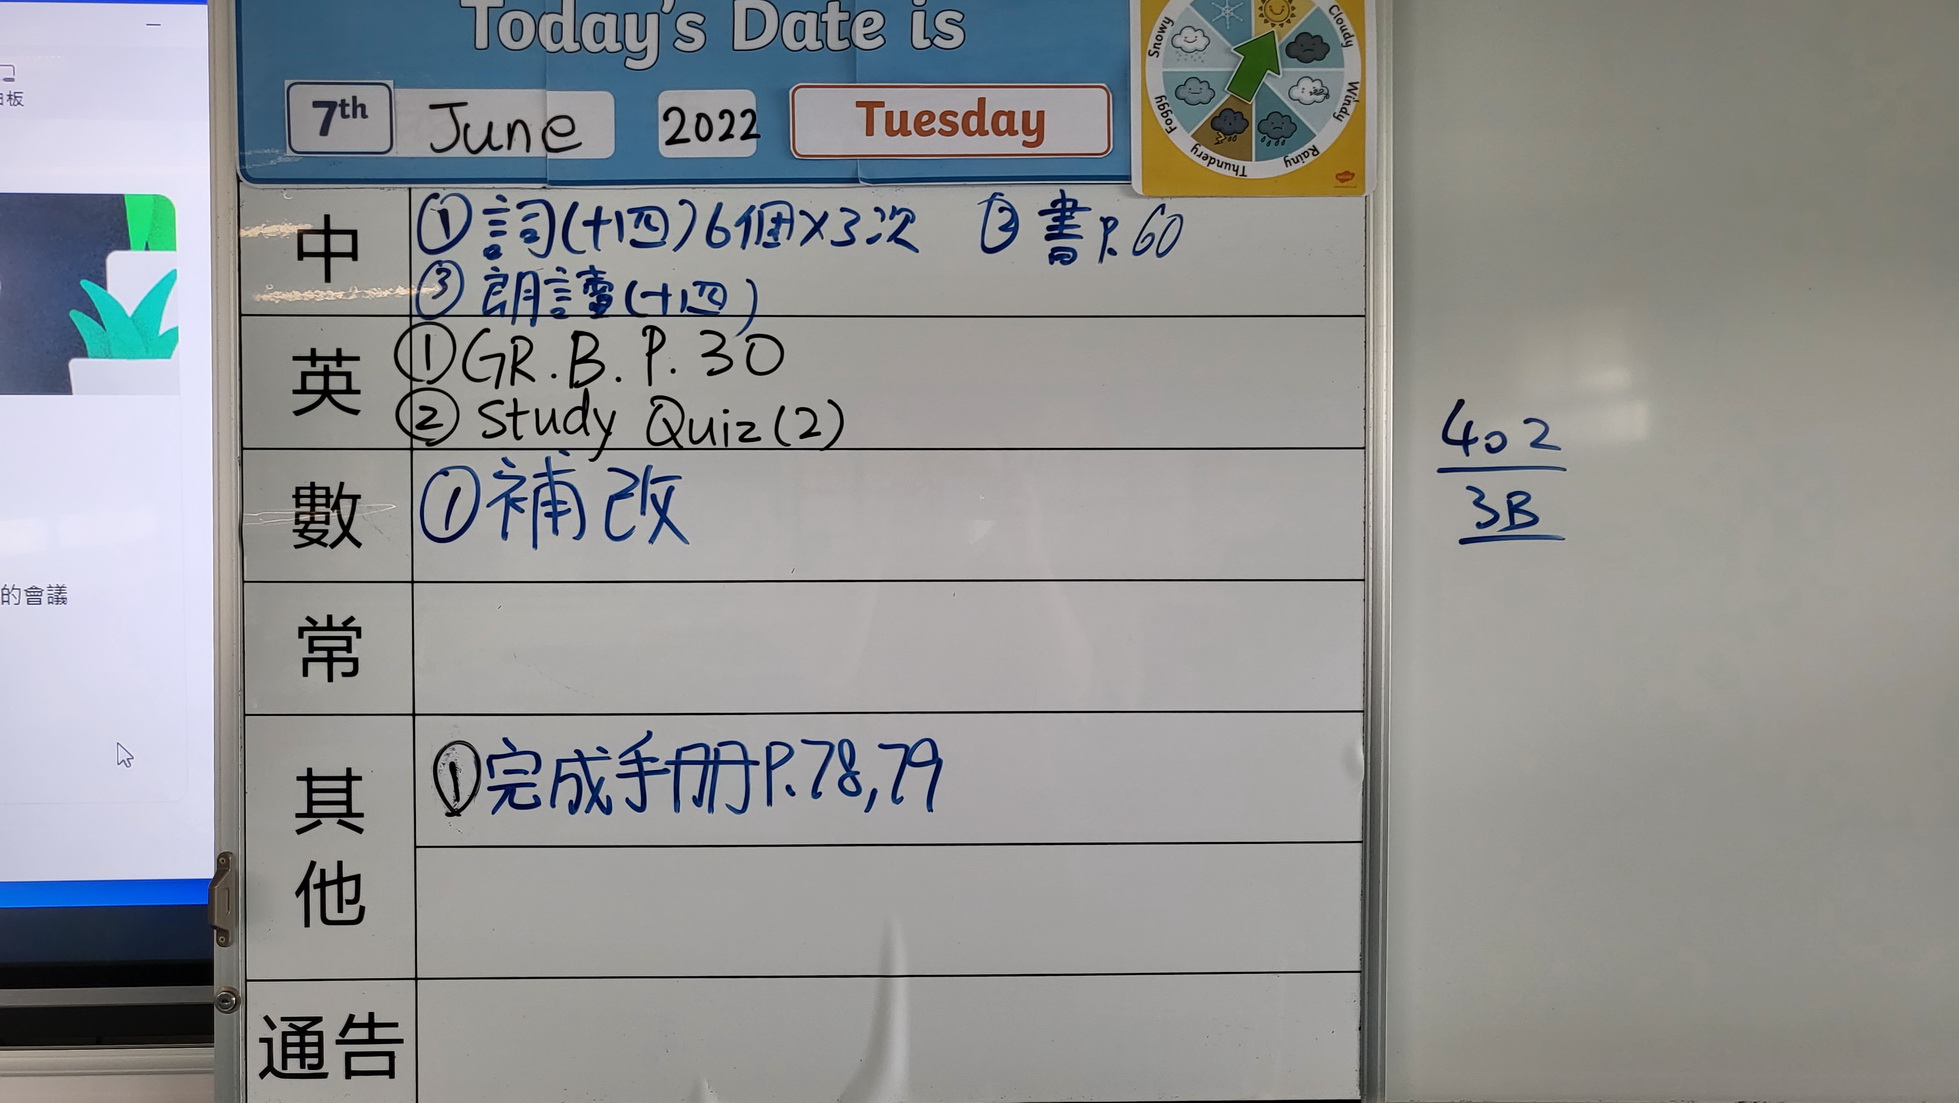 Today's Date is
7th June 2022 Tuesday
Snowy Cloudy Windy Rainy Thundery Foggy
板
的會議
中 ①詞(十四)6個×3次 ②書P.60
③朗讀(十四)
英 ①GR.B.P.30
②Study Quiz(2)
數 ①補改
常
其他 ①完成手册P.78,79
通告
402
3B